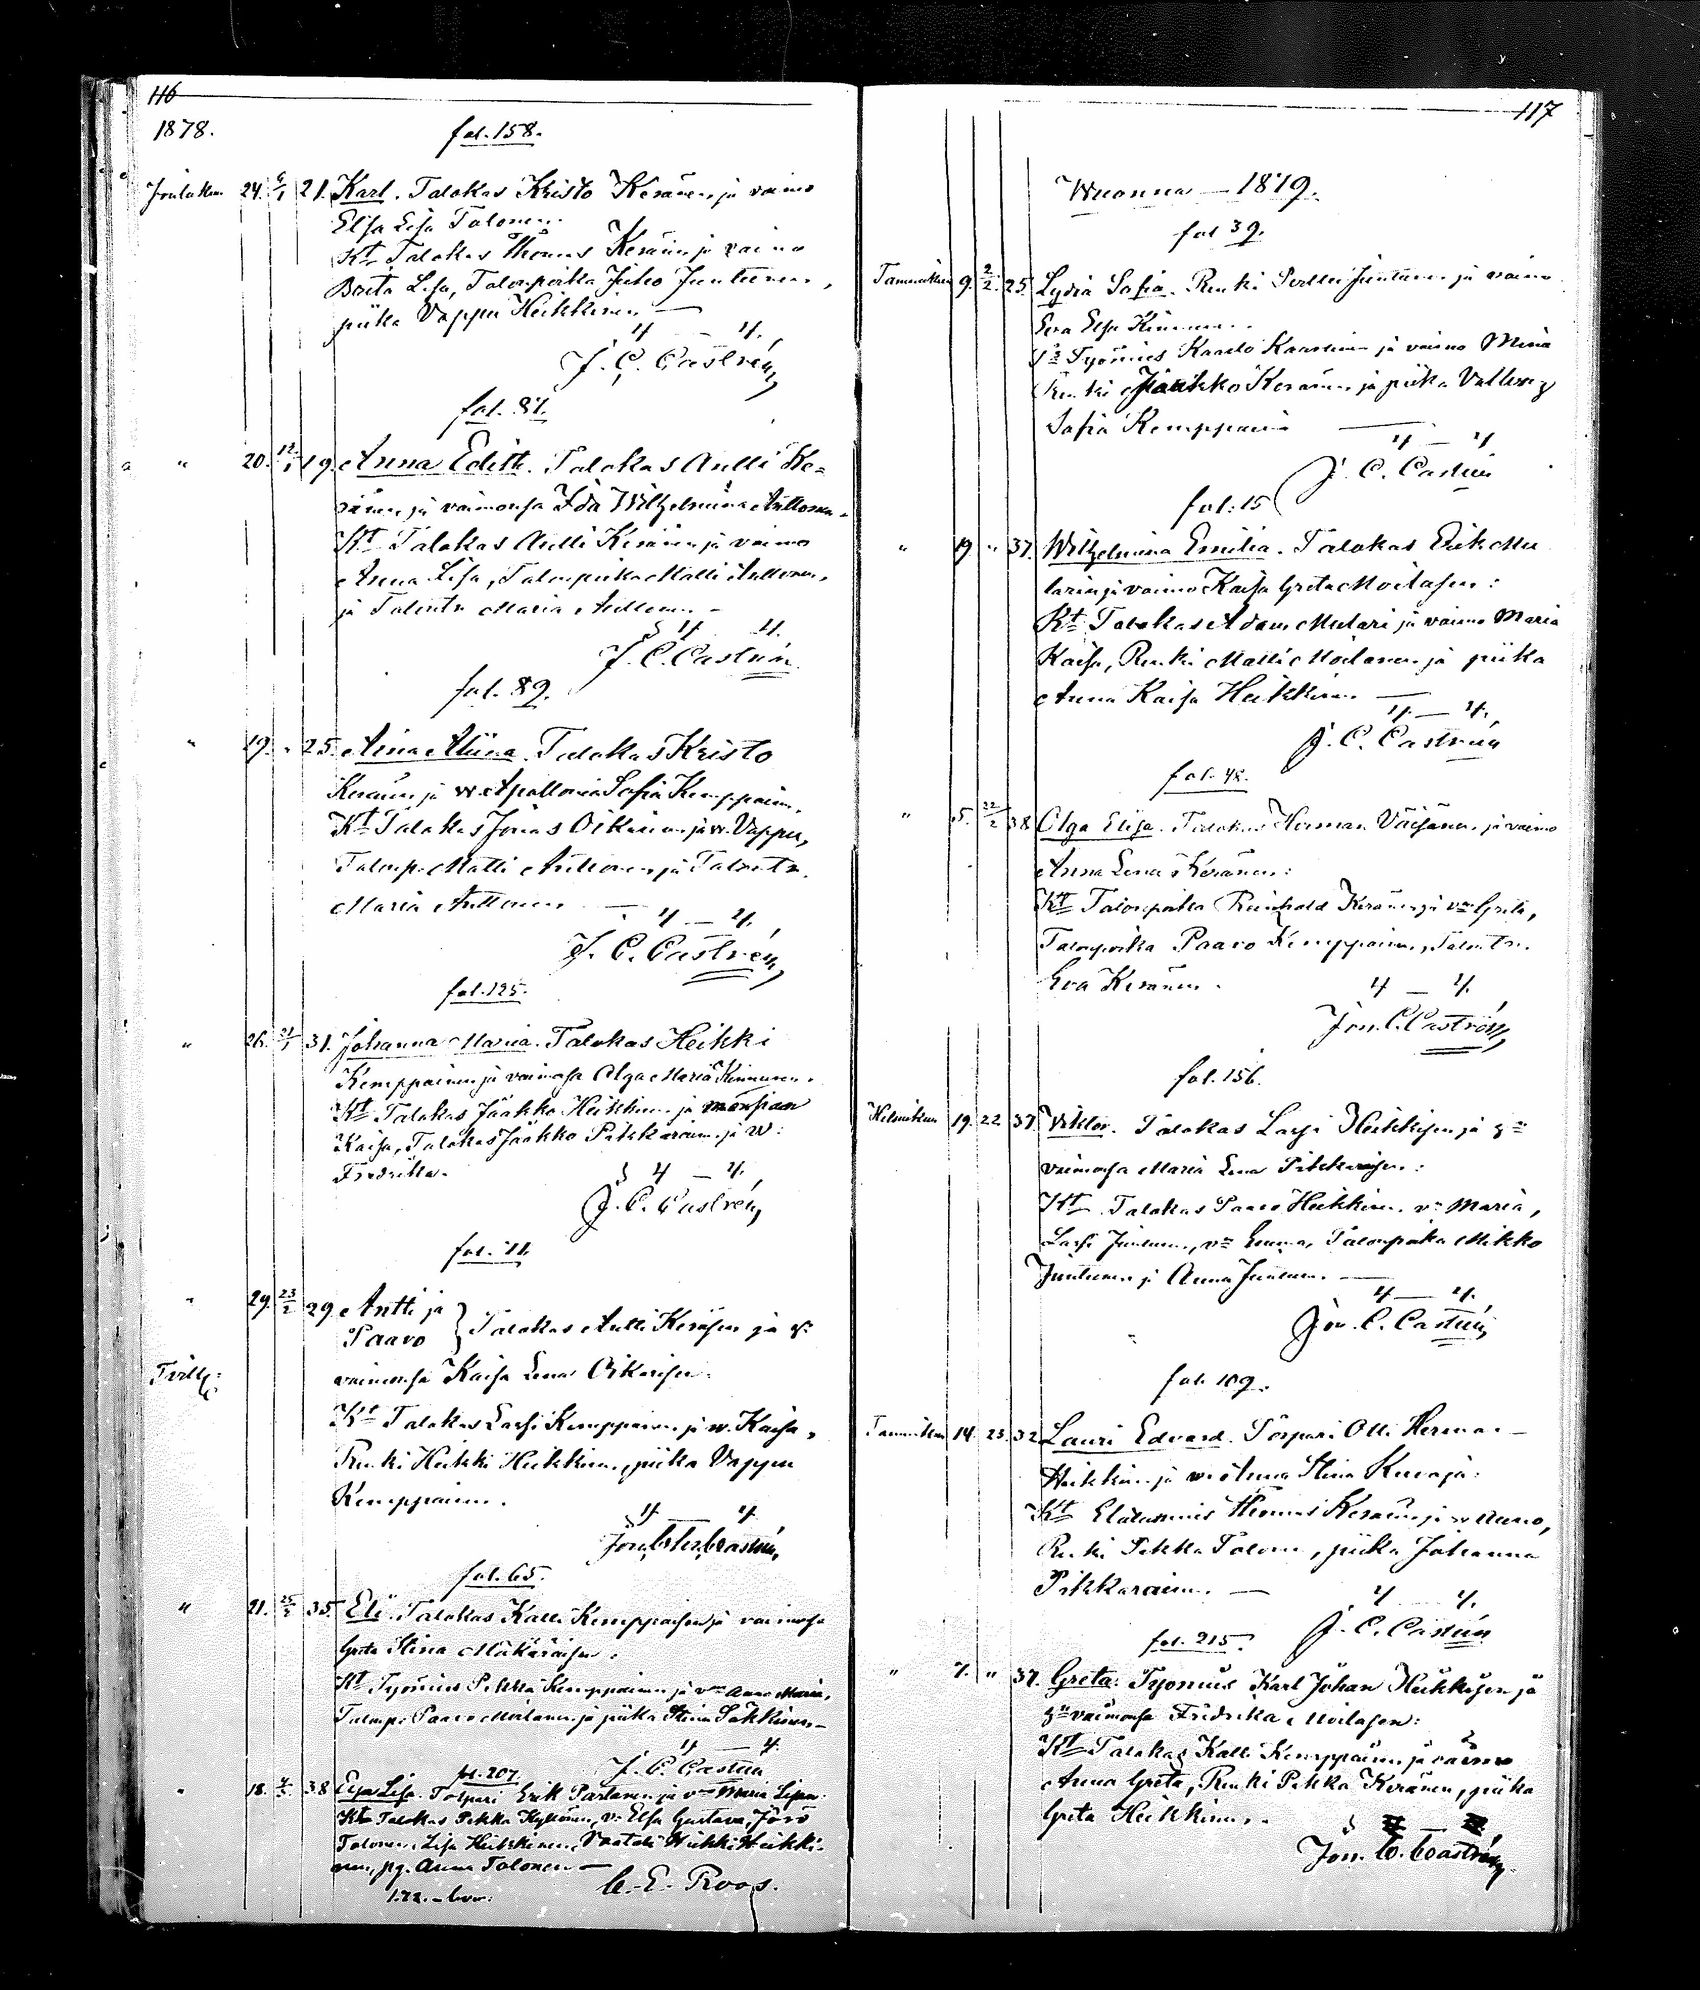 116
1878.
fol. 158.
Jouluk. 24. 6/1 21. Karl. Talokas Kristo Keränen ja vaimo
Elsa Lisa Talonen.
Kt Talokas Thomas Keränen ja vaimo
Brita Lisa, Talonpoika Juho Juntunen,
piika Vappu Heikkinen —
4 — 4.
J. C. Castrén
fol. 81.
" 20. 12/1 19. Anna Edith. Talokas Antti Ke=
ränen ja vaimonsa Ida Wilhelmina Anttonen.
Kt Talokas Antti Keränen ja vaimo
Anna Lisa, Talonpoika Matti Anttonen,
ja Talontr Maria Anttonen. —
4 4.
J. C. Castrén
fol. 89.
" 19. " 25. Aina Aliina. Talokas Kristo
Keränen ja w. Apollonia Sofia Kemppainen.
Kt Talokas Jonas Oikarinen ja w. Vappu,
Talonp. Matti Anttonen ja Talontr.
Maria Anttonen —
4 — 4.
J. C. Castrén
fol. 125.
" 26. 21/1 31. Johanna Maria. Talokas Heikki
Kemppainen ja vaimosa Olga Maria Kinnunen.
Kt Talokas Jaakko Heikkinen ja
Kaisa, Talokas Jaakko Pikkarainen ja w:
Fredrika.
4 — 4.
J. C. Castrén
fol. 11.
" 29. 23/2 29. Antti ja
Paavo } Talokas Antti Keräsen ja
vaimonsa Kaisa Lena Oikarisen.
Kt Talokas Lassi Kemppainen ja w. Kaisa,
Renki Heikki Heikkinen, piika Vappu
Kemppainen.
4 4
Castrén
fol. 65.
" 21. 25/2 35. Eli. Talokas Kalle Kemppaisen ja vaimosa
Greta Stina Mäkäräisen:
Kt Työmies Pekka Kemppainen ja vmo Anna Maria,
Talonp. Paavo Moilanen ja piika Stina Säkkinen —
4 — 4.
J. C. Castrén
fol. 207.
" 18. 38 Eva Lisa. Torpari Erik Partanen ja vmo Maria
Kt Talokas Pekka Kyllönen, vo Elsa Gustava, Jörö
Talonen, Lisa Heikkinen, Heikki Heikki-
nen, pg. Anna Talonen —
C. E. Roos.
117
Wuonna — 1879.
fol 39.
Tammikuu 9. 2/2. 25. Lydia Sofia. Renki Perttu Juntunen ja vaimo
Eva Elsa Kinnunen.
Työmies Kaarlo Karttunen ja vaimo Mina
Renki Jaakko Keränen ja piika Valborg
Sofia Kemppainen —
4 — 4
J. C. Castrén
fol. 15
" 19 " 37. Wilhelmina Emilia. Talokas Erik Mu
larin ja vaimo Kaisa Greta Moilasen:
Kt Talokas Adam Mulari ja vaimo Maria
Kaisa, Renki Matti Moilanen ja piika
Anna Kaisa Heikkinen. —
4 — 4.
J. C. Castrén
fol. 48.
" 5. 22/2 38 Olga Elisa. Talokas Herman Väisänen ja vaimo
Anna Lena Keränen:
Kt Talonpoika Reinhold Keränen ja vmo Greta,
Talonpoika Paavo Kemppainen, Talontr.
Eva Keränen.
4 — 4.
Jon. C. Castrén
fol. 156.
Helmikuu 19. 22 37. Viktor. Talokas Lassi Heikkisen ja
vaimonsa Maria Lena Pikkaraisen:
Kt Talokas Paavo Heikkinen, vo Maria,
Lassi Juntunen, vo Emma, Talonpoika Mikko
Juntunen ja Anna Juntunen. —
4 — 4.
Jon. C. Castrén
fol. 109.
Tammikuu 14. 23. 32. Lauri Edvard. Torpari Olli Herman —
Heikkinen ja Stina
Kt Thomas Keränen ja w Anna,
Renki Pekka Talonen, piika Johanna
Pikkarainen. —
4 4.
J. C. Castrén
fol. 215.
" 7. " 37. Greta: Työmies Karl Johan Heikkisen ja
vaimonsa Fredrika Moilasen:
Kt Talokas Kalle Kemppainen ja vaimo
Anna Greta, Renki Pekka Keränen, piika
Greta Heikkinen.
Jon. C. Castrén